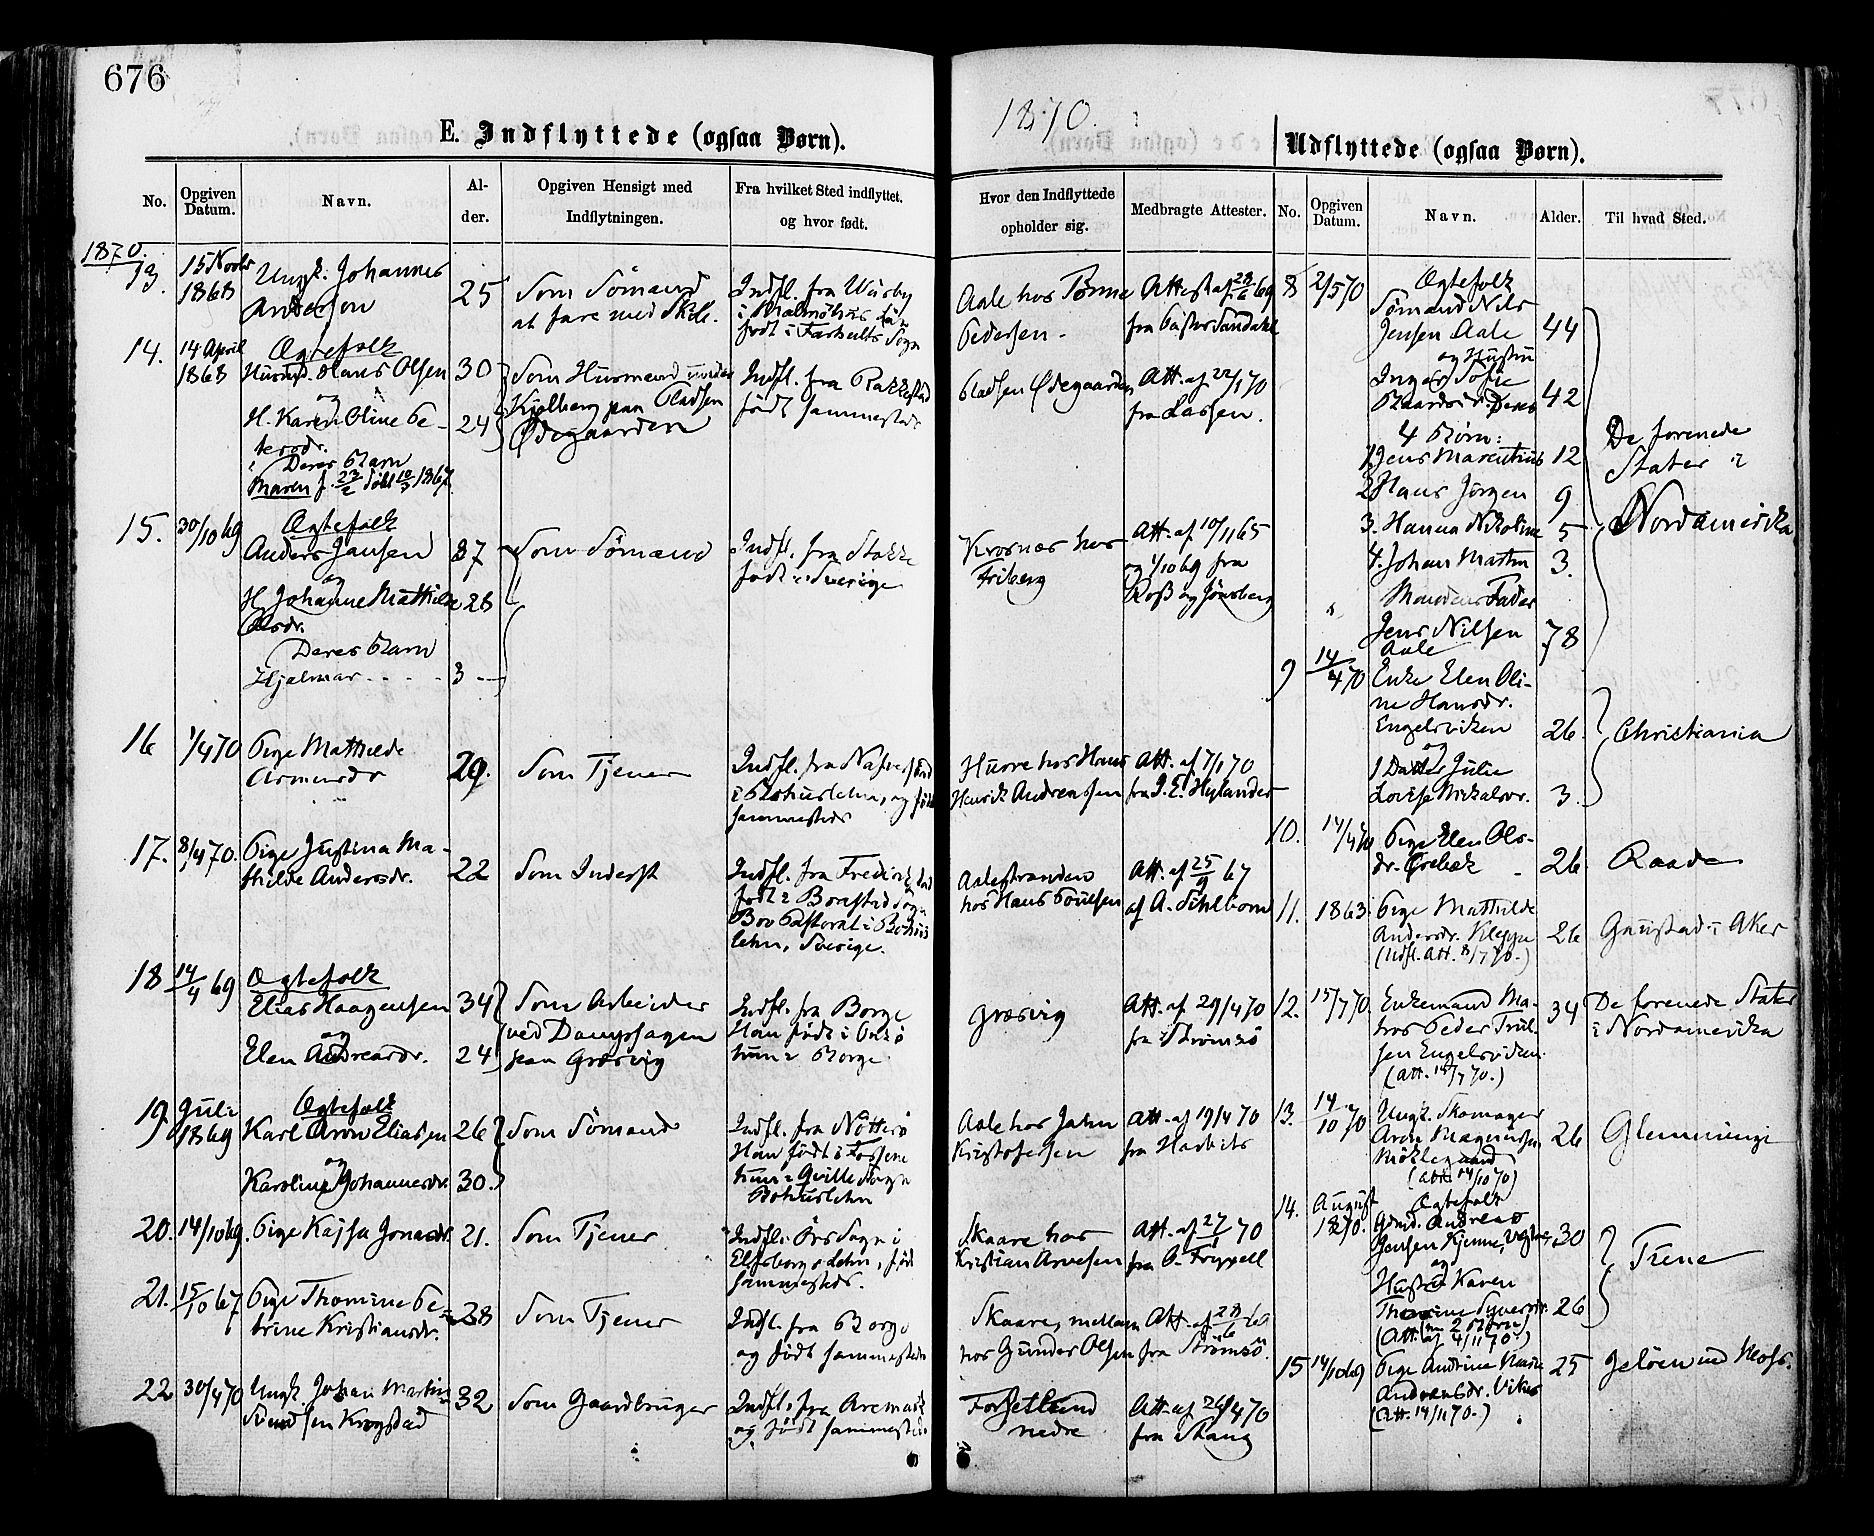 676
1870.
E. Indflyttede (ogsaa Børn).
Udflyttede (ogsaa Børn).
No.
Opgiven Datum.
Navn.
Al-
der.
Opgiven Hensigt med
Indflytningen.
Fra hvilket Sted indflyttet.
og hvor født.
Hvor den Indflyttede
opholder sig.
Medbragte Attester.
No.
Opgiven
Datum.
Navn.
Alder.
Til hvad Sted.
1870.
13.
15 Novbr
1868
Ungk. Johannes
Anderson
25
Som Sömand
at fare med Skib.
Indfl. fra
i Malmöhus Län
født i Farhults Sogn
Aale hos Tönne
Pedersen
Attest af 28/6 69
fra Pastor Sandahl
14.
14 April
1868
Ægtefolk
Husmd. Hans Olsen
og
H. Karen Oline Pe-
tersdr.
Deres Barn
Maren
1867.
30
24
Som Husmand under
Kjølberg paa Pladsen
Ødegaarden
Indfl. fra Rakkestad
født sammesteds
Pladsen Ødegaarden
Att. af 22/1 70
fra Lassen.
15.
30/10 69
Ægtefolk
Anders Jansen
og
H. Johanne Mathilde
Olsdr.
Deres Barn
Hjalmar
37
28
3
Som Sömand
Indfl. fra Stokke
født i Sverige
Krosnæs hos
Friberg
Att. af 10/11 65
og 1/10 69 fra
Ross og Jönsberg
16
1/4 70
Pige Mathilde
29.
Som Tjener
Indfl. fra
i Bohuslehn, og født
sammesteds
Huore hos Hans
Henrik Andreassen
Att. af 7/1 70
fra J. E. Hylander
17.
8/4 70.
Pige Justina Ma-
thilde Andersdr.
22
Som Inderst
Indfl. fra Fredrikstad
født i Borestad Sogn
Bro Pastorat i Bohus
lehn, Sverige.
Aalestranden
hos Hans Poulsen
Att. af 25/9 67
af A. Sihlbom
18
14/4 69
Ægtefolk
Elias Haagensen
og
Elen Andreasdr.
34
24
Som Arbeider
ved Dampsagen
paa Græsvig
Indfl. fra Borge
Han født i Onsø
hun i Borge
Græsvig
Att. af 29/4 70
fra Strömsö
19
Juli
1869
Ægtefolk
Karl Aron Eliasen
og
Karoline Johannesdr.
26
30.
Som Sömand
Indfl. fra Nötterö
Han født i Fossene
hun i Qville Sogn
Bohuslehn
Aale hos Johan
Kristofersen
Att. af 19/4 70
fra Harbitz
20.
14/10 69.
Pige Kajsa Jonasdr.
21.
Som Tjener
Indfl. Örs Sogn i
Elfsborgs Lehn, født
sammesteds.
Skaare hos
Kristian Arvesen
Att. af 27/1 70
fra O. Fryxell
21.
15/10 67
Pige Thomine Pe-
trine Kristiansdr.
28
Som Tjener
Indfl. fra Borge
og født sammesteds
Skaare, mellem
hos Gunder Olsen
Att. af 28/6 69
fra Strömsö.
22
30/4 70
Ungk. Johan Martin
Krogstad
32
Som Gaardbruger
Indfl. fra Aremark
og født sammesteds
Forsetlund
nedre
Att. af 26/4 70
fra Stang
8
2/5 70
Ægtefolk
Sömand Nils
Jensen Aale
og Hustru
Inger Sofie
Baardsdr. Deres
4 Børn:
1. Jens Marentius
2 Hans Jörgen
3. Hanna Nikoline
4. Johan Martin
Mandens Fader
Jens Nilsen
Aale
44
42
12
9
5
3.
78
De forenede
Stater i
Nordamerika
9
14/4 70
Enke Elen Oli-
ne Hansdr.
Engelsviken
og
1 Datter Julie
Lovise Mikalsdr.
26.
3.
Christiania
10.
14/4 70
Pige Elen Ols-
dr. Græbak
26
Raade
11.
1863
Pige Mathilde
Andersdr. Kleppe
(Udfl. Att. 8/7 70.)
26
Gaustad i Aker
12.
15/7 70.
Enkemand Ma-
thias Peder Trul-
sen Engelsviken.
(Att. 15/7 70.)
34
De forenede Stater
i Nordamerika
13.
14/10 70
Ungk. Skomager
Aron Magnussen
Mökleg
(Att. 14/10 70)
26
Glemminge
14.
August
1870.
Ægtefolk
Gmd. Andreas
Jensen Kjenne,
og
Hustru Karen
Thorine Syversdr.
(med 2 Børn)
(Att. af 4/11 70.)
30
26
Tune
15
14/10 69
Pige Andrine Marie
Andreasdr. Viker
(Att. 14/11 70.)
25
Jelöen ved Moss.